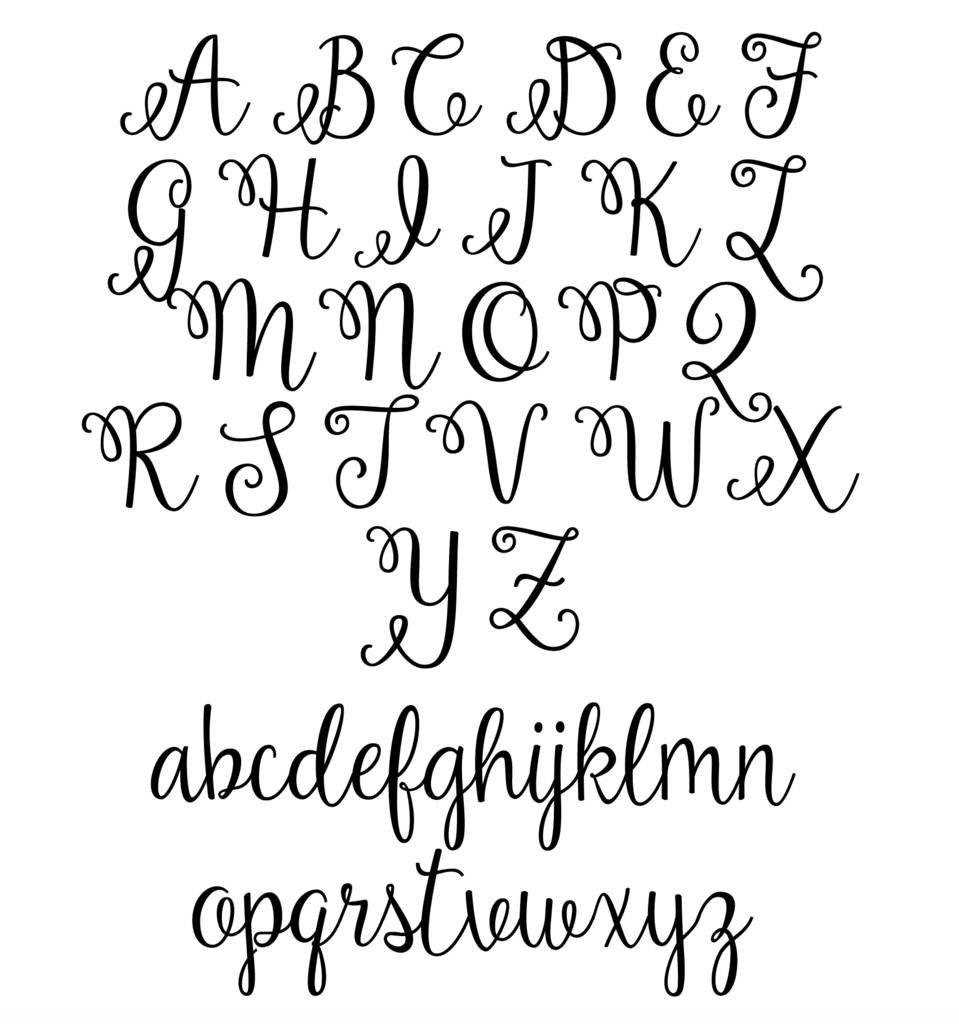 A B C D E F
G H I J K L
M N O P Q
R S T V W X
Y Z
abcdefghijklmn
opqrstvwxyz